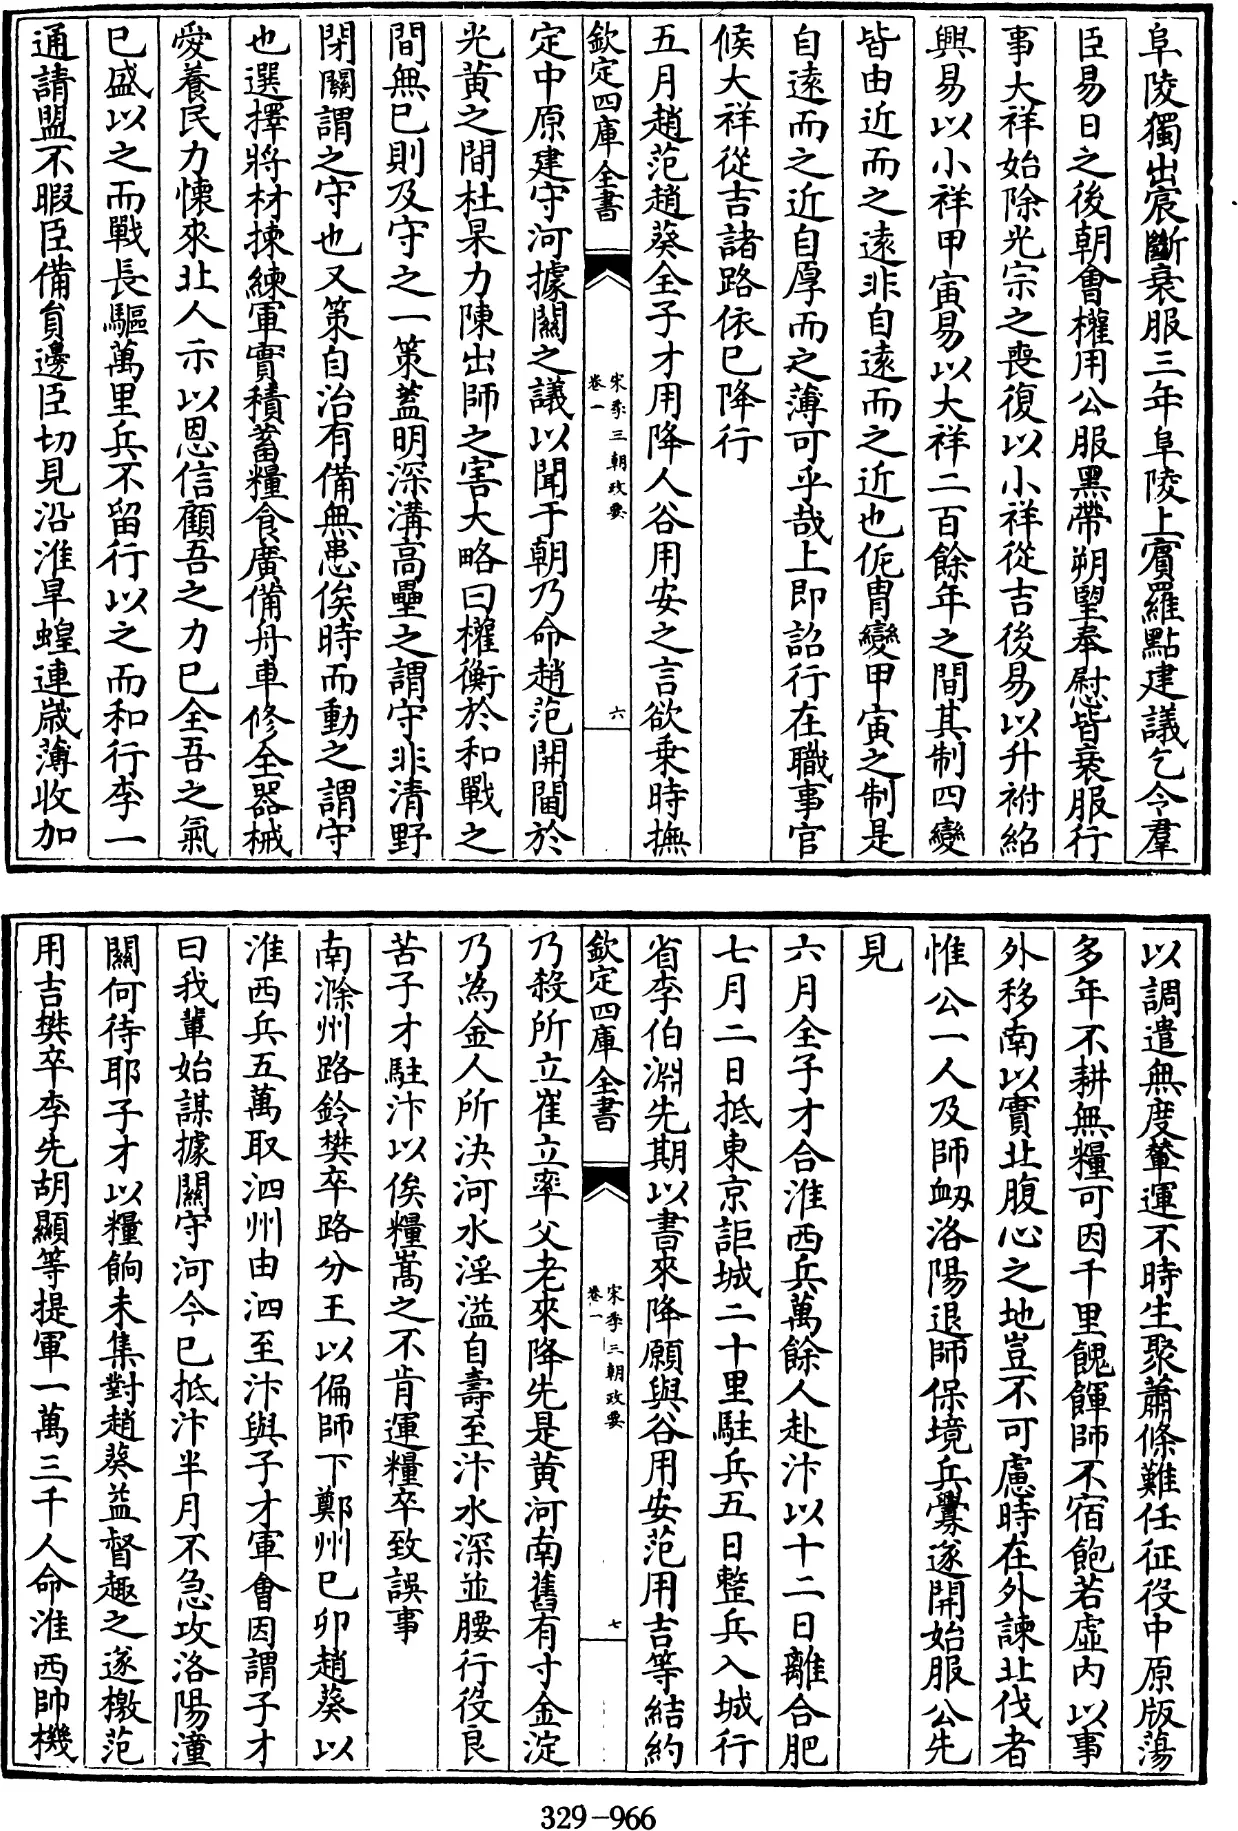 阜陵獨出宸斷衰服三年阜陵上賓羅點建議乞令羣
臣易日之後朝會權用公服黑帶朔望奉慰皆衰服行
事大祥始除光宗之喪復以小祥從吉後易以升祔紹
興易以小祥甲寅易以大祥二百餘年之間其制四變
皆由近而之遠非自遠而之近也侂胄變甲寅之制是
自遠而之近自厚而之薄可乎哉上即詔行在職事官
候大祥從吉諸路依已降行
五月趙范趙葵全子才用降人谷用安之言欲乗時撫
欽定四庫全書
宋季三朝政要
卷一
六
定中原建守河據關之議以聞于朝乃命趙范開閫於
光黄之間杜杲力陳出師之害大略曰權衡於和戰之
間無已則及守之一策蓋明深溝高壘之謂守非清野
閉關謂之守也又策自治有備無患俟時而動之謂守
也選擇將材揀練軍實積蓄糧食廣備舟車修全器械
愛養民力懐來北人示以恩信顧吾之力已全吾之氣
已盛以之而戰長驅萬里兵不留行以之而和行李一
通請盟不暇臣備員邊臣切見沿淮旱蝗連歳薄收加
以調遣無度輦運不時生聚蕭條難任征役中原版蕩
多年不耕無糧可因千里餽餫師不宿飽若虛内以事
外移南以實北腹心之地豈不可慮時在外諫北伐者
惟公一人及師衂洛陽退師保境兵釁遂開始服公先
見
六月全子才合淮西兵萬餘人赴汴以十二日離合肥
七月二日抵東京詎城二十里駐兵五日整兵入城行
省李伯淵先期以書來降願與谷用安范用吉等結約
欽定四庫全書
宋季三朝政要
卷一
七
乃殺所立崔立率父老來降先是黄河南舊有寸金淀
乃為金人所決河水淫溢自壽至汴水深並腰行役良
苦子才駐汴以俟糧嵩之不肯運糧卒致誤事
南滁州路鈐樊卒路分王以偏師下鄭州已卯趙葵以
淮西兵五萬取泗州由泗至汴與子才軍會因謂子才
曰我輩始謀據關守河今已抵汴半月不急攻洛陽潼
關何待耶子才以糧餉未集對趙葵益督趣之遂檄范
用吉樊卒李先胡顯等提軍一萬三千人命淮西帥機
329-966